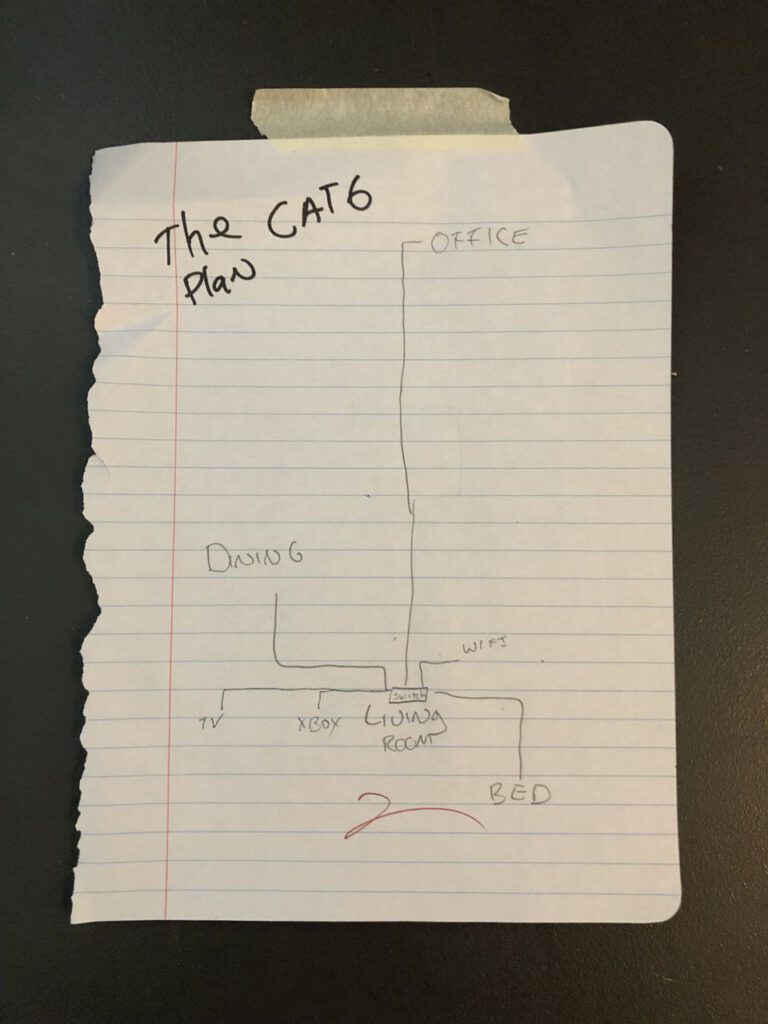 The CAT6
Plan
OFFICE
DINING
WIFI
Switch
TV
XBOX
LIVING
ROOM
BED